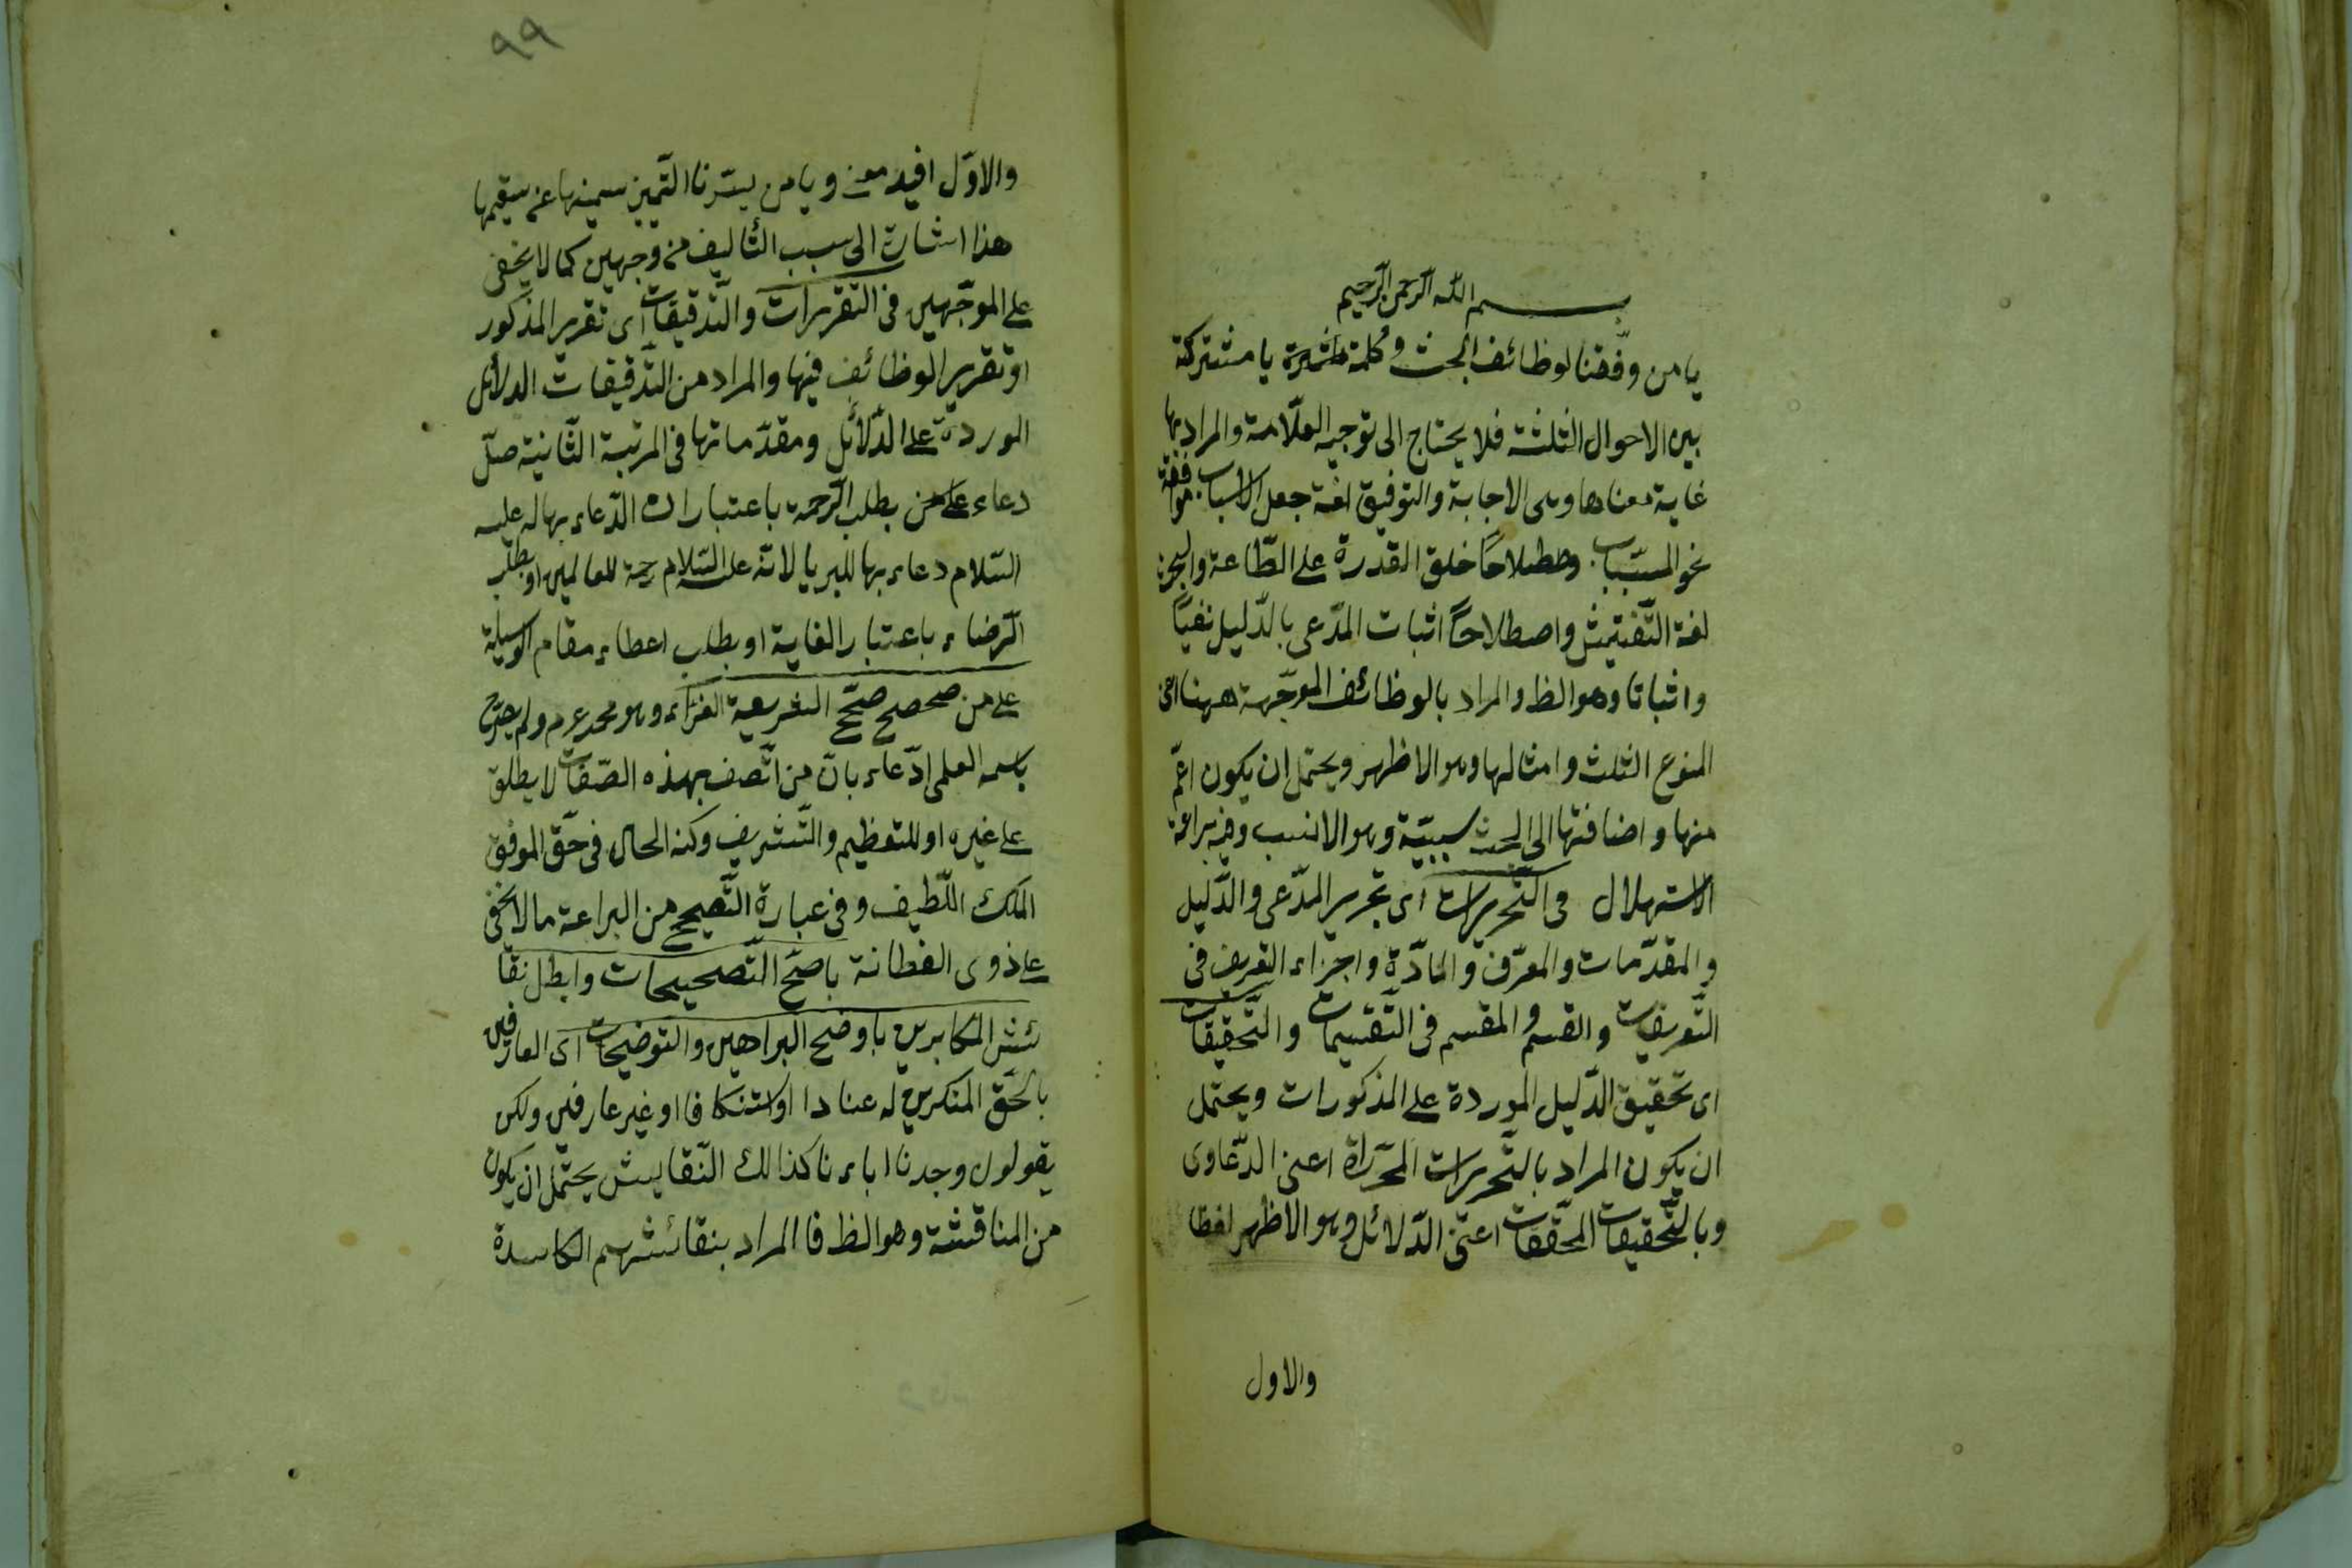 بسم الله الرحمن الرحيم
يا من وفّقنا لوظائف البحث وكلمة يا مشتركة
بين الاحوال الثلثة فلا يحتاج الى توجيه العلّامة والمراد بها
غاية معناها وهى الاجابة والتوفيق لغة جعل الاسباب موافقة
نحو المسبّبات واصطلاحًا خلق القدرة على الطّاعة والبحث
لغة التّفتيش واصطلاحًا اثبات المدّعى بالدّليل نفيًا
واثباتا وهو الظ والمراد بالوظائف الموجّهة ههنا اعنى
المنوع الثلث وامثالها وهو الاظهر ويحتمل ان يكون اعمّ
منها واضافتها الى البحث سببيّة وهو الانسب وفيه براعة
الاستهلال فى التّحريرات اى تحرير المدّعى والدّليل
والمقدّمات والمعرّف والمادّة واجزاء التعريف فى
التّعريفات والقسم والمقسم فى التّقسيمات والتّحقيقات
اى تحقيق الدّليل الموردة على المذكورات ويحتمل
ان يكون المراد بالتّحريرات المحرّراة اعنى الدّعاوى
وبالتّحقيقات المحقّقات اعنى الدّلائل وهو الاظهر لفظا
والاول
٩٩
والاوّل افيد معنى ويا من يسّرنا التّميز سمينها عن سقيمها
هذا اشارة الى سبب التّأليف من وجهين كما لا يخفى
على الموجّهين فى التّقريرات والتّدقيقات اى تقرير المذكور
او تقرير الوظائف فيها والمراد من التّدقيقات الدلائل
الموردة على الدّلائل ومقدّماتها فى المرتبة الثّانية صلّ
دعاء على من بطلب الرّحمة باعتبار ان الدّعاء بها له عليه
السّلام دعاء بها للبريا لانّه عليه السّلام رحمة للعالمين او بطلب
الرّضاء باعتبار الغاية او بطلب اعطاء مقام الوسيلة
على من صحصح صحّ الشريعة الغرّاء وهو محمد عرم ولم يصرّح
باسمه العلمى ادّعاء بانّ من اتّصف بهذه الصّفات لا يطلق
على غيره او للتعظيم والتّشريف وكنه الحال فى حقّ الموفّق
الملك اللّطيف وفى عبارة التّصحيح من البراعة ما لا يخفى
على ذوى الفطانة باصحّ التّصحيحات وابطل نقا
ئش المكابرين باوضح البراهين والتوضيحات اى العارفين
بالحقّ المنكرين له عنادا او استنكافا او غير عارفين ولكن
يقولون وجدنا اباءنا كذالك النّقايش يحتمل ان يكون
من المناقشة وهو الظ فا المراد بنقائشهم الكاسدة